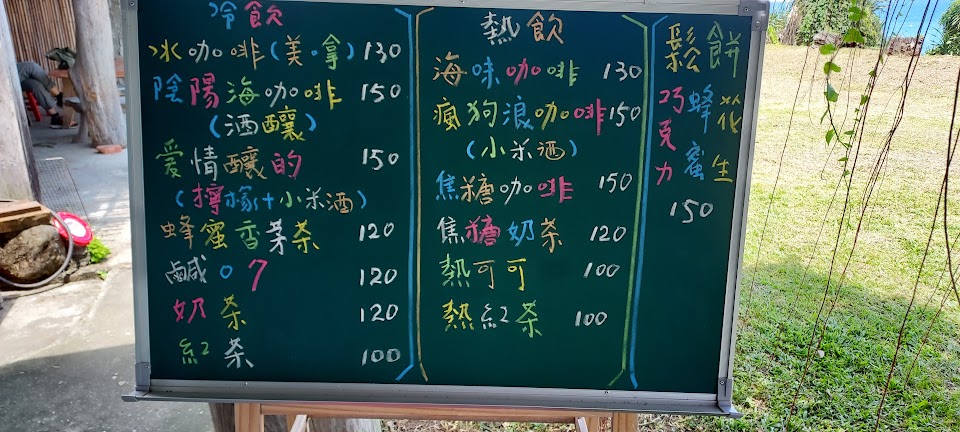 冷飲
冰咖啡(美.拿)130
陰陽海咖啡 150
(酒釀)
愛情釀的 150
(檸檬+小米酒)
蜂蜜香茅茶 120
鹹07 120
奶茶 120
紅茶 100
熱飲
海味咖啡 130
瘋狗浪咖啡150
(小米酒)
焦糖咖啡 150
焦糖奶茶 120
熱可可 100
熱紅茶 100
鬆餅
巧克力
蜂蜜
花生
150